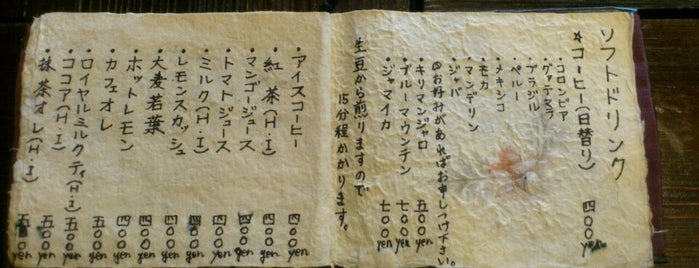 ソフトドリンク
☆コーヒー(日替り) 四〇〇yen
・コロンビア
・グァテマラ
・ブラジル
・ペルー
・メキシコ
・モカ
・マンデリン
・ジャバ
◎お好みがあればお申しつけ下さい。
・キリマンジャロ 五〇〇yen
・ブルーマウンテン 七〇〇yen
・ジャマイカ 七〇〇yen
生豆から煎りますので
15分程かかります。
・アイスコーヒー 四〇〇yen
・紅茶(H・I) 四〇〇yen
・マンゴージュース 四〇〇yen
・トマトジュース 四〇〇yen
・ミルク(H・I) 四〇〇yen
・レモンスカッシュ 四〇〇yen
・大麦若葉 四〇〇yen
・ホットレモン 四〇〇yen
・カフェオレ 四〇〇yen
・ロイヤルミルクティ(H・I) 五〇〇yen
・ココア(H・I) 五〇〇yen
・抹茶オレ(H・I) 五〇〇yen